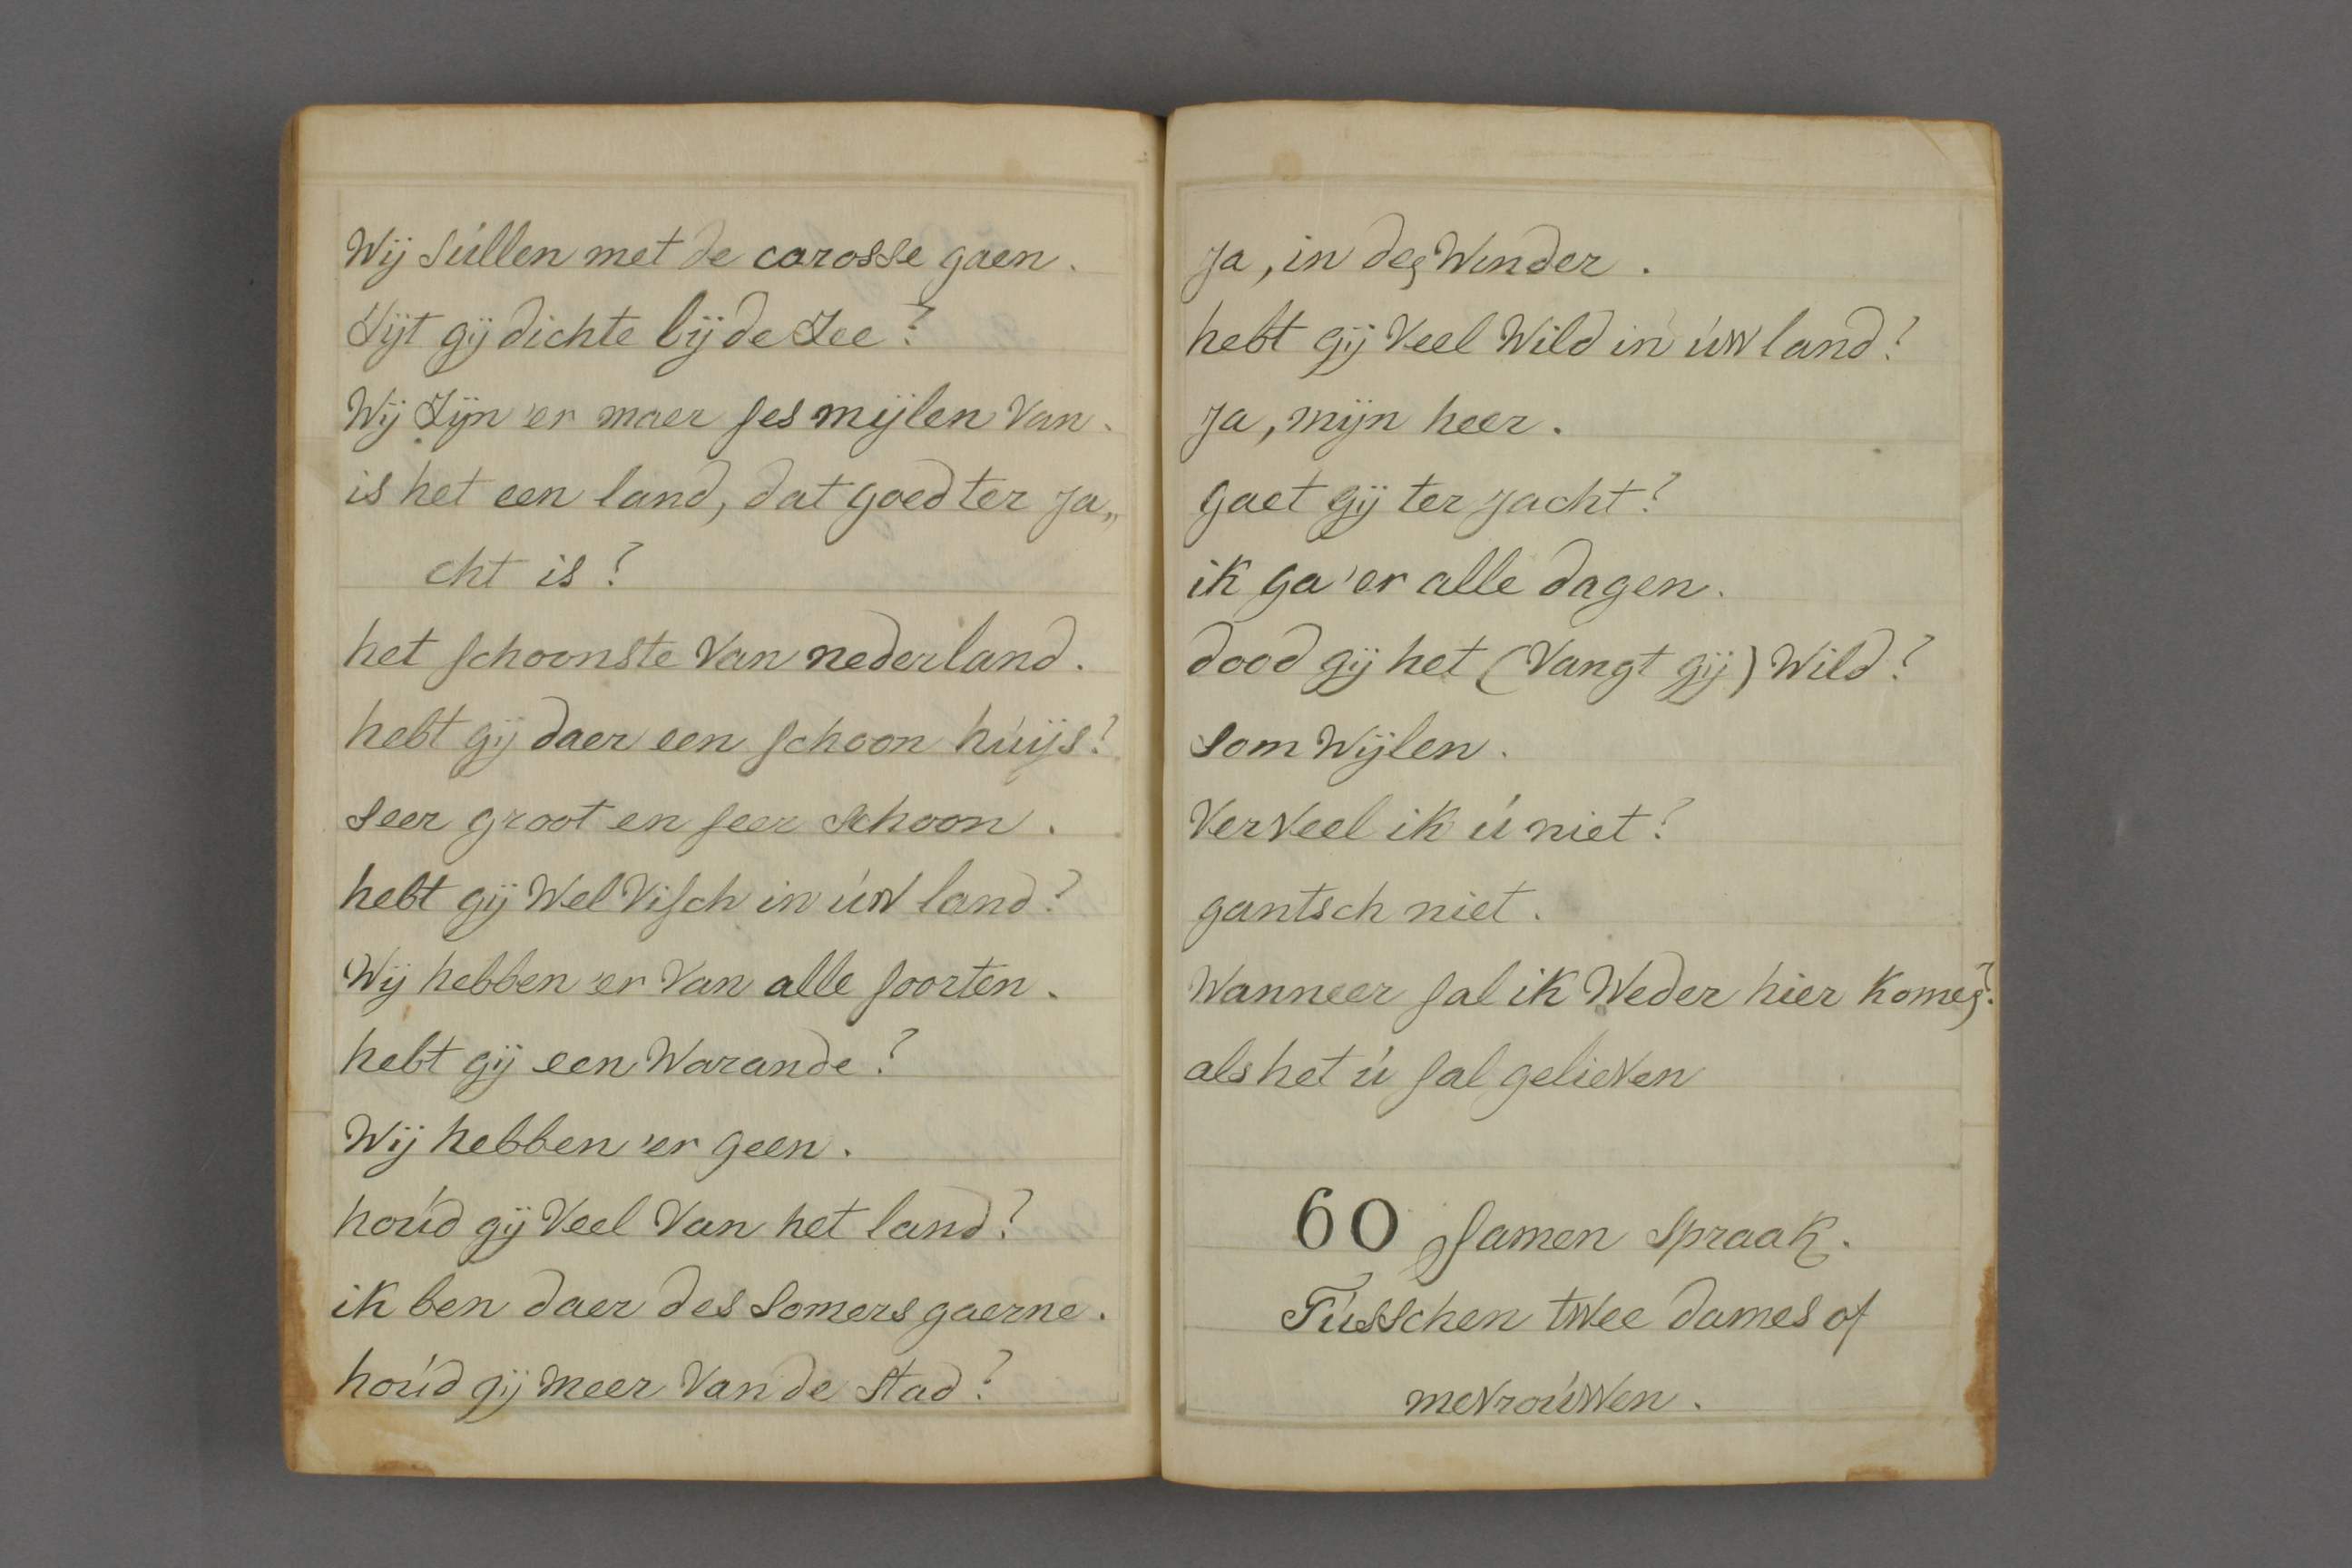 Wij súllen met de carosse gaen.
Zijt gij dichte bij de Zee?
Wij Zijn 'er maer ses mijlen Van.
is het een land, dat goed ter ja„
cht is?
het schoonste Van nederland.
hebt gij daer een schoon húijs?
seer groot en seer schoon.
hebt gij Wel Visch in úw land?
Wij hebben 'er Van alle soorten.
hebt gij een Warande?
Wij hebben 'er geen.
hoúd gij Veel Van het land?
ik ben daer des somers gaerne.
hoúd gij meer Van de stad?
ja, in den Winder.
hebt gij Veel Wild in úw land?
ja, mijn heer.
gaet gij ter jacht?
ik ga 'er alle dagen.
dood gij het (Vangt gij) Wild?
som Wijlen.
Verveel ik ú niet?
gantsch niet.
Wanneer sal ik Weder hier komen?
als het ú sal gelieven
60 samen spraak.
Tússchen twee dames of
mevroúwen.